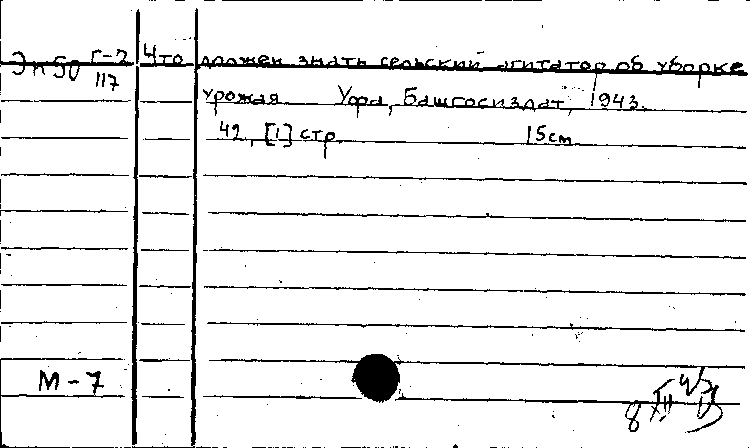 Эп50 Г-2/117 Что должен знать сельский агитатор об уборке
урожая. Уфа, Башгосиздат, 1943.
42, [1] стр. 15см.
М-7
8 XII